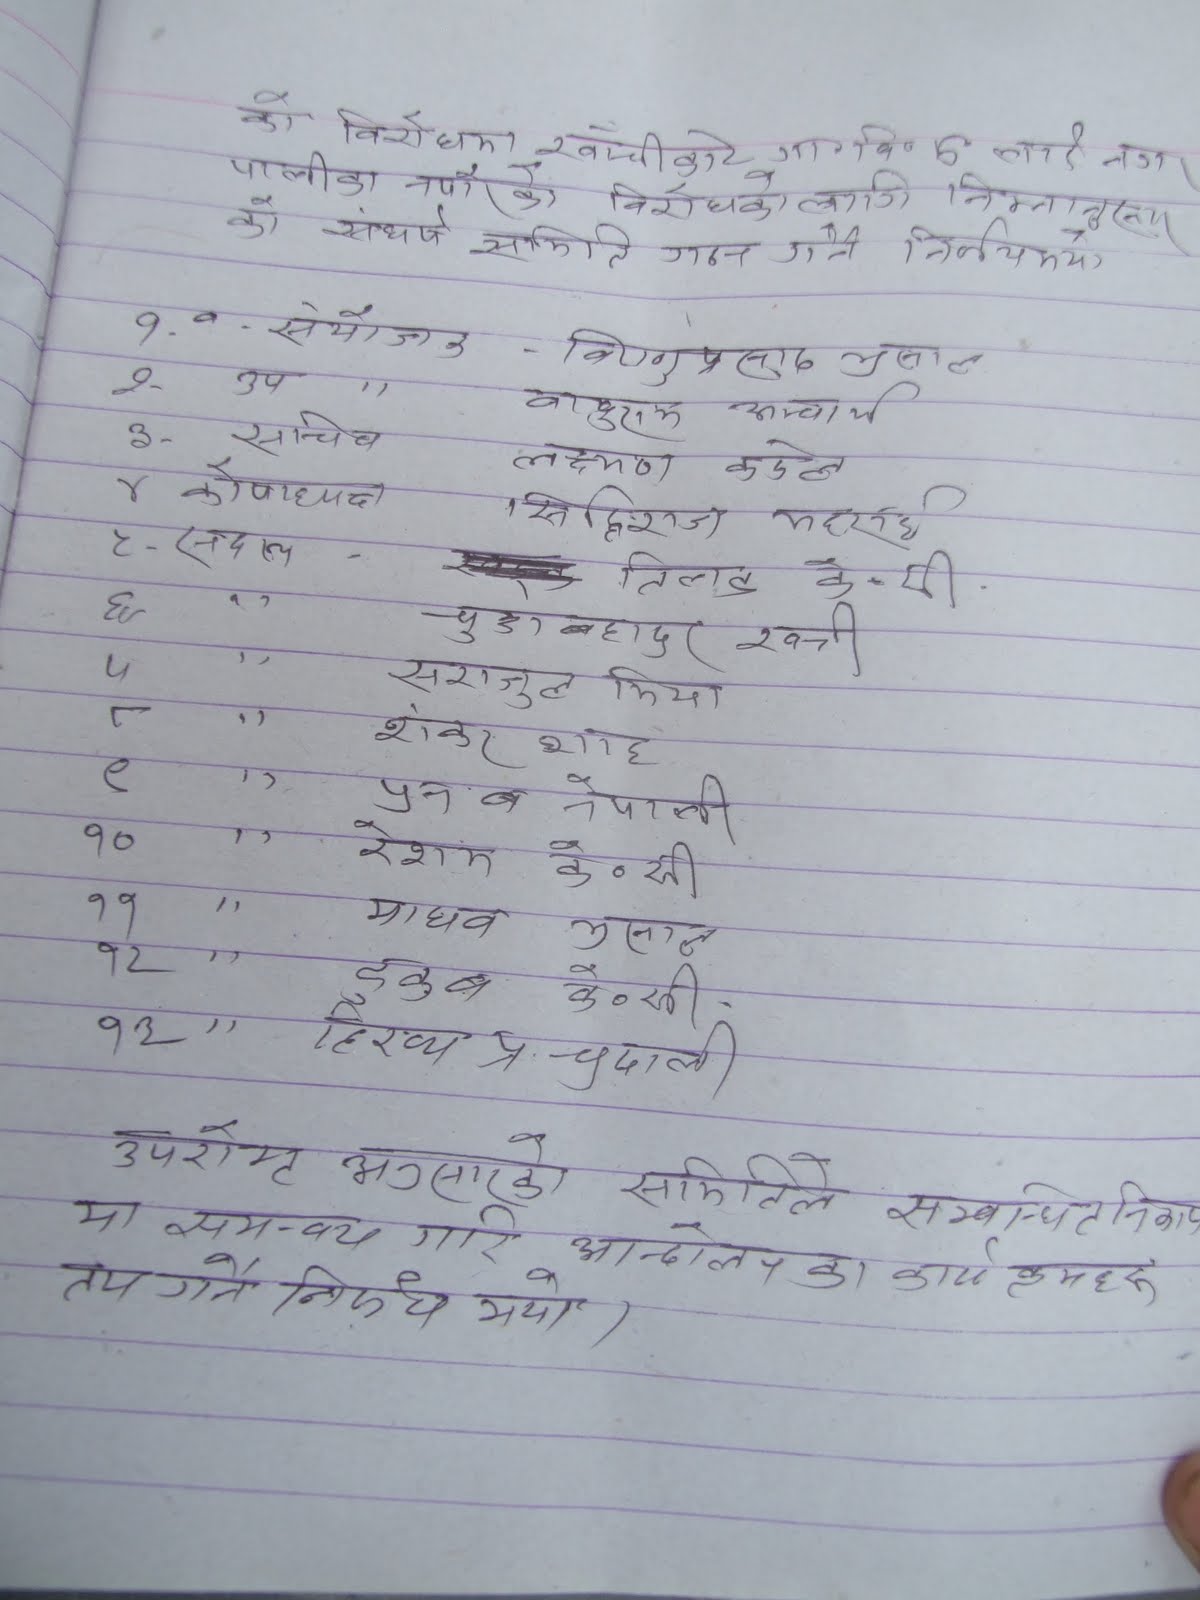 को विरोधमा खाँचीकोट गा.वि. लाई नगर
पालीका नपारेको विरोधको लागि निम्नानुसार
को संघर्ष समिति गठन गर्ने निर्णय भयो
१. संयोजक - विष्णु प्रसाद भुसाल
२- उप " बाबुराम आचार्य
३- सचिव लक्ष्मण कडेल
४ कोषाध्यक्ष सिद्धिराज भट्टराई
५- सदस्य - तिलक के.सी.
६ " चुडा बहादुर खत्री
७ " सराजुल मिया
८ " शंकर शाह
९ " पुन ब नेपाली
१० " रेशम के॰सी
११ " माधव भुसाल
१२ " के॰सी.
१३ " प्र.
उपरोक्त अनुसारको समितिले सम्बन्धित निकाय
मा समन्वय गरि आन्दोलन का कार्यक्रमहरू
तय गर्ने निर्णय भयो।